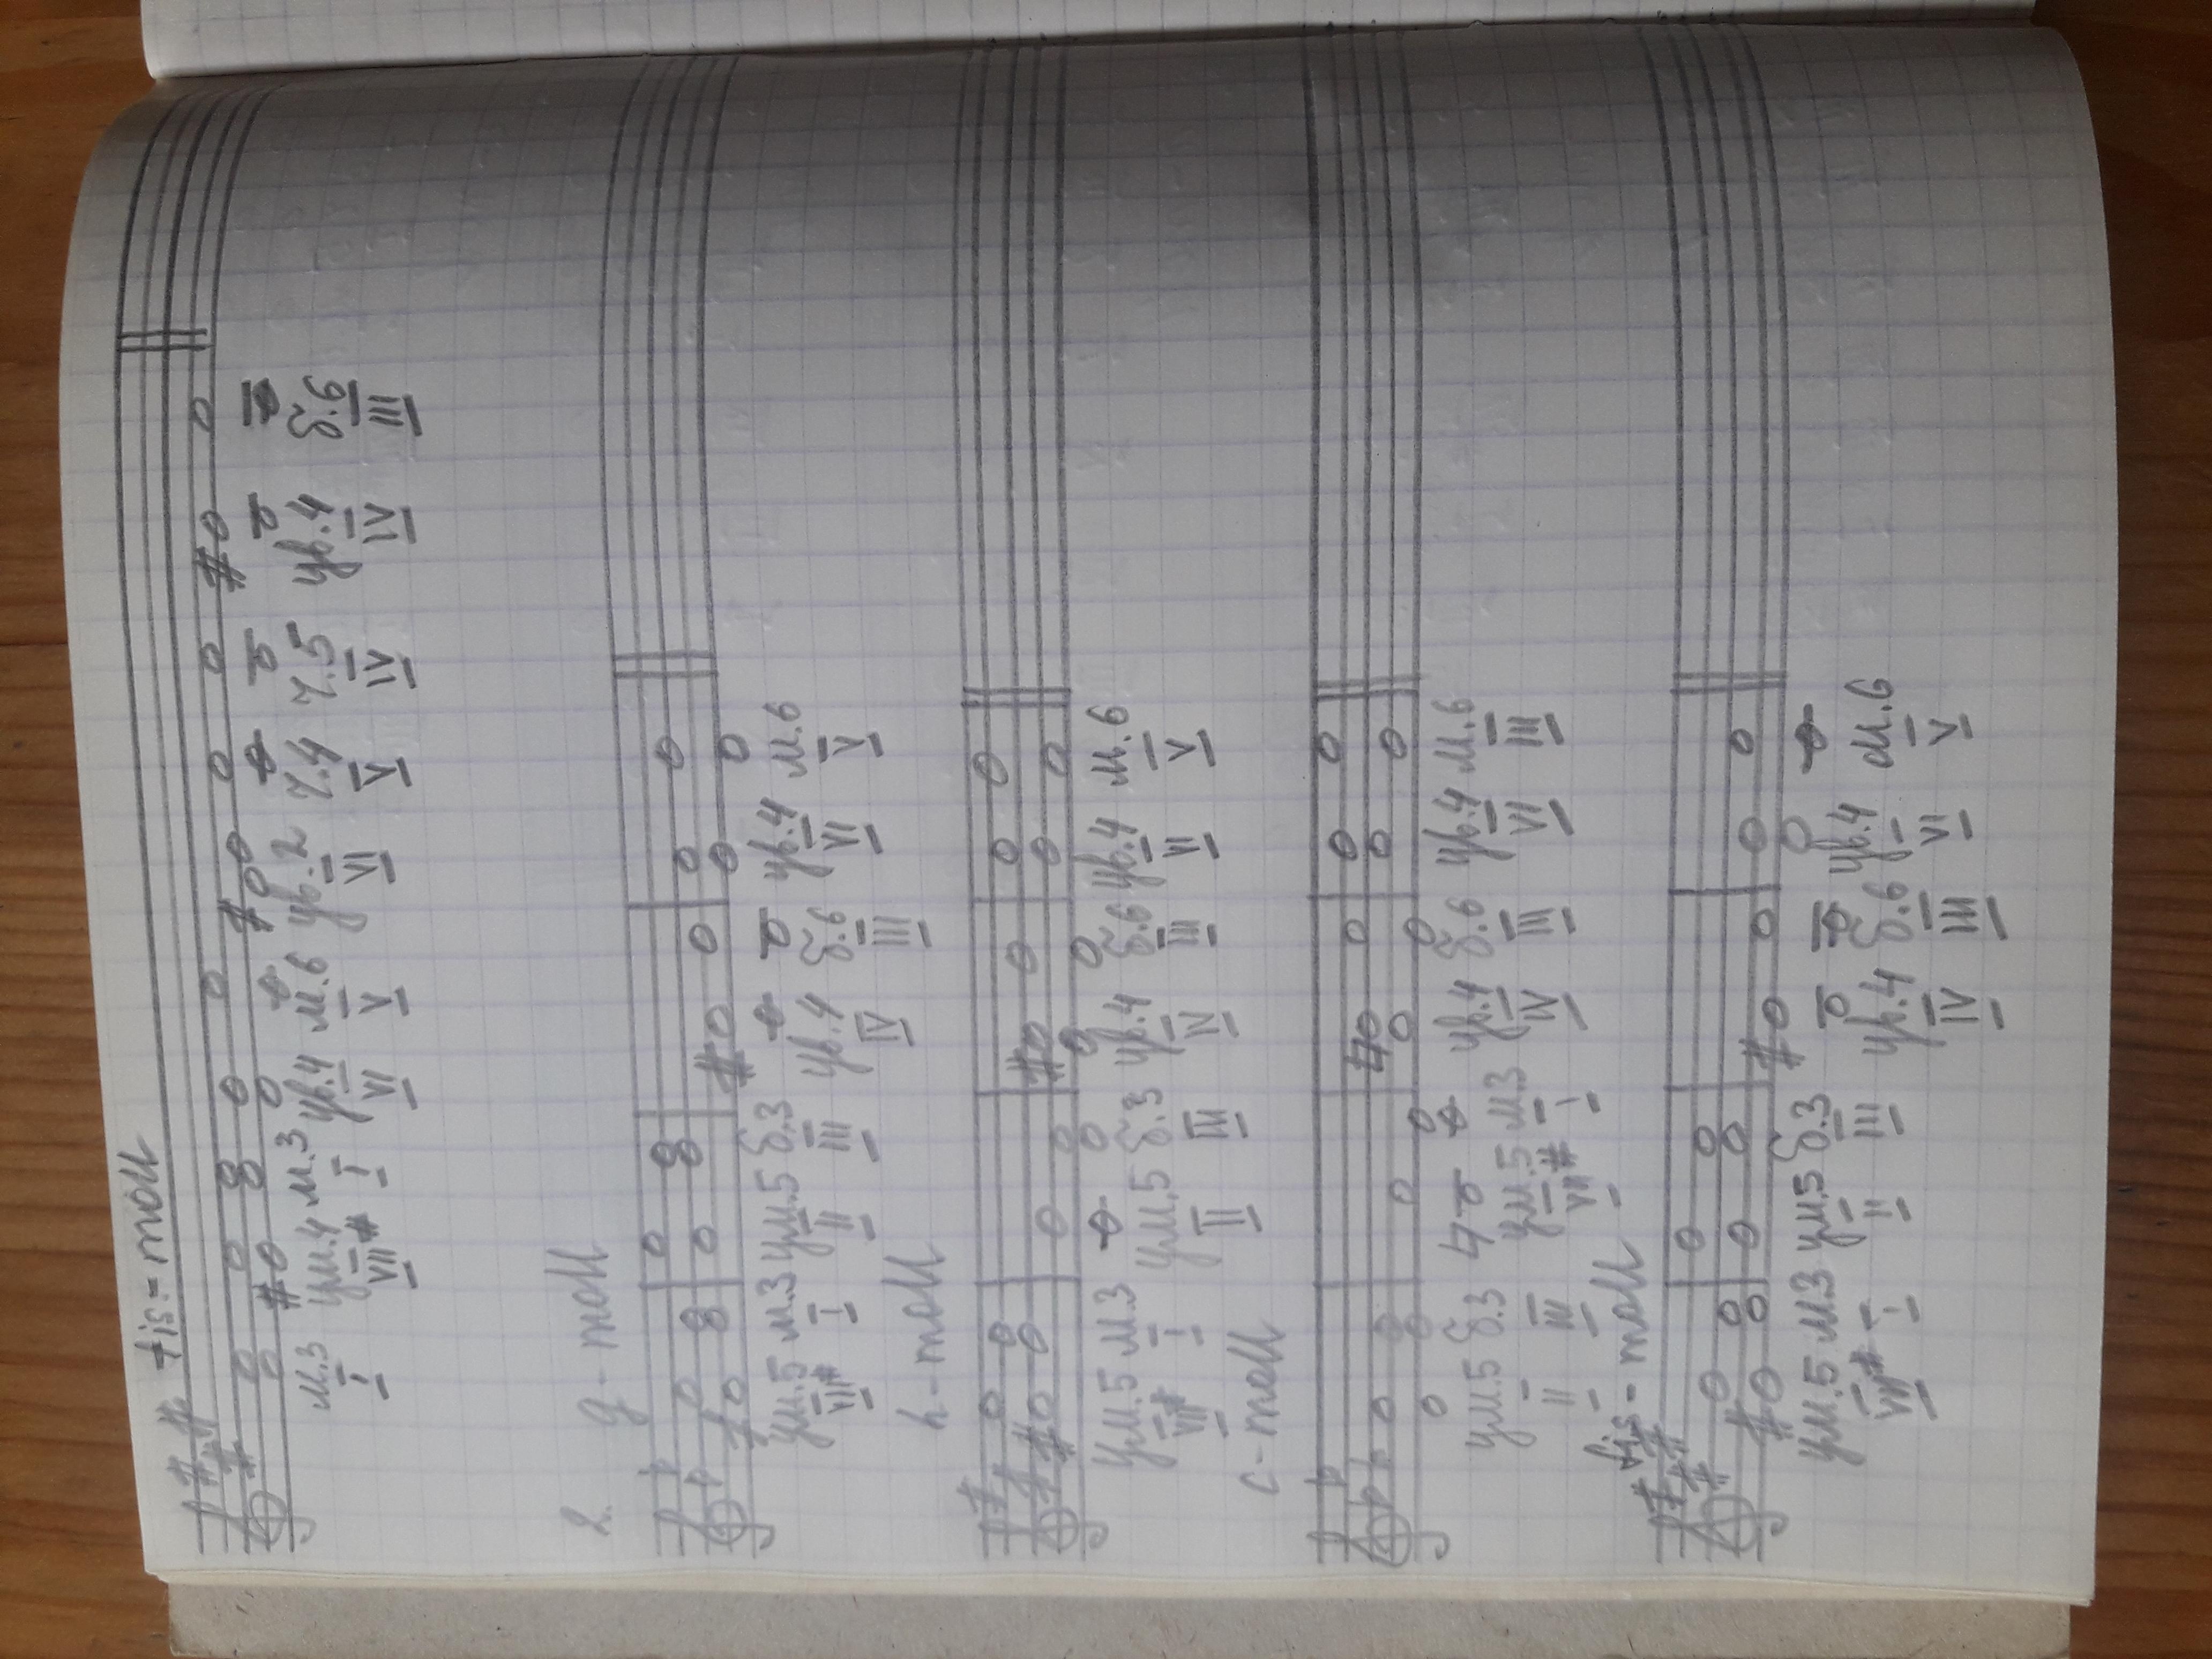 fis - moll
м.3 ум.4 м.3 ув.4 м.6 ув.2 ч.4 ч.5 ув.4 б.6
I VII# I VI V VI V IV IV III
2. g - moll
ум.5 м.3 ум.5 б.3 ув.4 б.6 ув.4 м.6
VII# I II III IV III VI V
h - moll
ум.5 м.3 ум.5 б.3 ув.4 б.6 ув.4 м.6
VII# I II III IV III VI V
c - moll
ум.5 б.3 ум.5 м.3 ув.4 б.6 ув.4 м.6
II III VII# I IV III VI III
fis - moll
ум.5 м.3 ум.5 б.3 ув.4 б.6 ув.4 м.6
VII# I II III IV III VI V